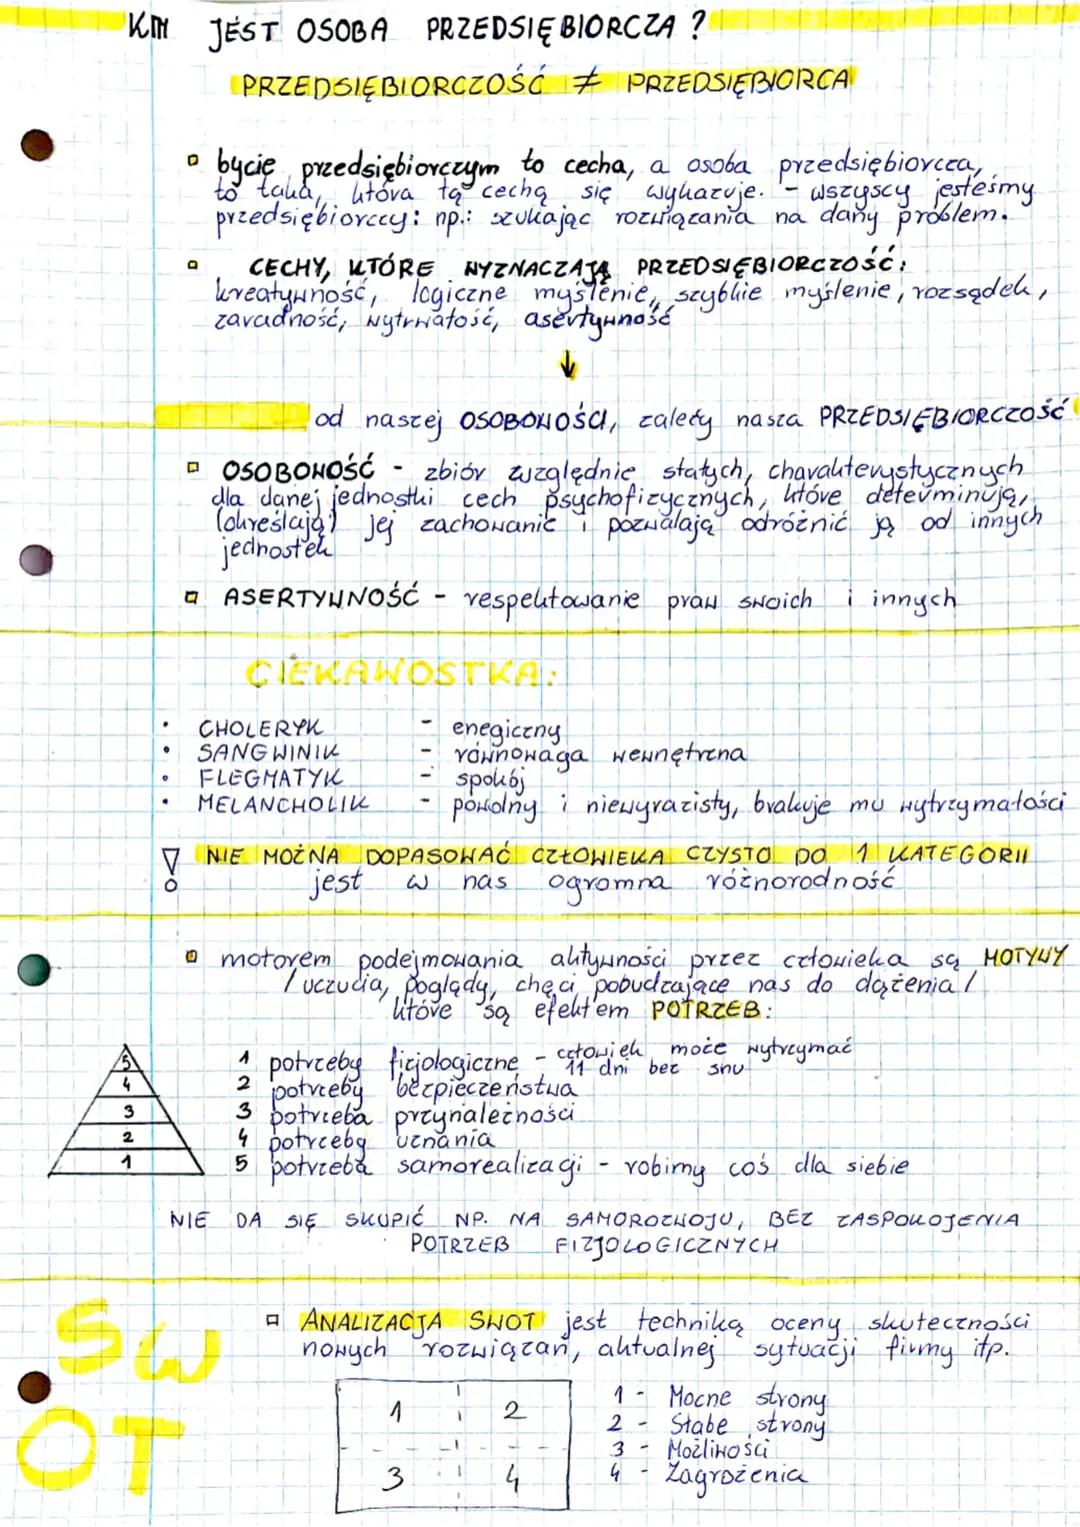 KIM JEST OSOBA PRZEDSIĘBIORCZA?
PRZEDSIĘBIORCZOŚĆ ≠ PRZEDSIĘBIORCA
bycie przedsiębiorczym to cecha, a osoba przedsiębiorcza,
to taka, która tą cechą się wykazuje. - wszyscy jesteśmy
przedsiębiorczy: np.: szukając rozwiązania na dany problem.
CECHY, KTÓRE WYZNACZAJĄ PRZEDSIĘBIORCZOŚĆ:
kreatywność, logiczne myślenie, szybkie myślenie, rozsądek,
zaradność, wytrwałość, asertywność
↓
od naszej OSOBOWOŚCI, zależy nasza PRZEDSIĘBIORCZOŚĆ
OSOBOWOŚĆ - zbiór względnie stałych, charakterystycznych
dla danej jednostki cech psychofizycznych, które determinują,
(określają) jej zachowanie i pozwalają odróżnić ją od innych
jednostek
ASERTYWNOŚĆ - respektowanie praw swoich i innych
CIEKAWOSTKA:
• CHOLERYK - enegiczny
• SANGWINIK - równowaga wewnętrzna
• FLEGMATYK - spokój
• MELANCHOLIK - powolny i niewyrazisty, brakuje mu wytrzymałości
! NIE MOŻNA DOPASOWAĆ CZŁOWIEKA CZYSTO DO 1 KATEGORII
jest w nas ogromna różnorodność
motorem podejmowania aktywności przez człowieka są MOTYWY
/uczucia, poglądy, chęci pobudzające nas do dążenia/
które są efektem POTRZEB:
5
4
3
2
1
1 potrzeby fizjologiczne - człowiek może wytrzymać
11 dni bez snu
2 potrzeby bezpieczeństwa
3 potrzeba przynależności
4 potrzeby uznania
5 potrzeba samorealizacji - robimy coś dla siebie
NIE DA SIĘ SKUPIĆ NP. NA SAMOROZWOJU, BEZ ZASPOKOJENIA
POTRZEB FIZJOLOGICZNYCH
SW
OT
ANALIZACJA SWOT jest techniką oceny skuteczności
nowych rozwiązań, aktualnej sytuacji firmy itp.
1 2
3 4
1 - Mocne strony
2 - Słabe strony
3 - Możliwości
4 - Zagrożenia